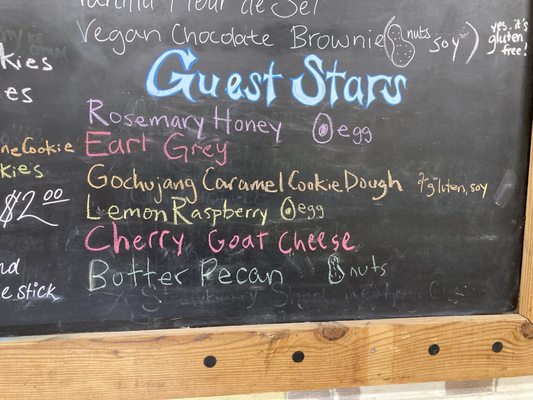 Fleur de Sel
Vegan Chocolate Brownie (nuts soy)
yes, it's
gluten
free!
Guest Stars
Rosemary Honey egg
Earl Grey
Gochujang Caramel Cookie Dough gluten, soy
Lemon Raspberry egg
Cherry Goat Cheese
Butter Pecan nuts
okies
es
ne Cookie
kies
$2.00
nd
e stick